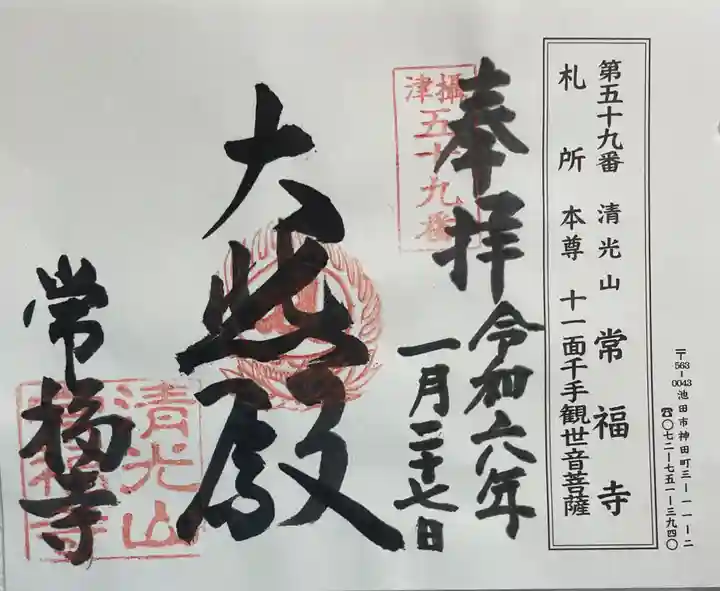 第五十九番 清光山 常福寺
札所 本尊 十一面千手観世音菩薩
〒563-0043 池田市神田町三-一一-二
☎〇七二-七五一-三九四〇
奉拝
令和六年
一月二十七日
攝津
五十九番
大悲殿
常福寺
清光山
常福寺